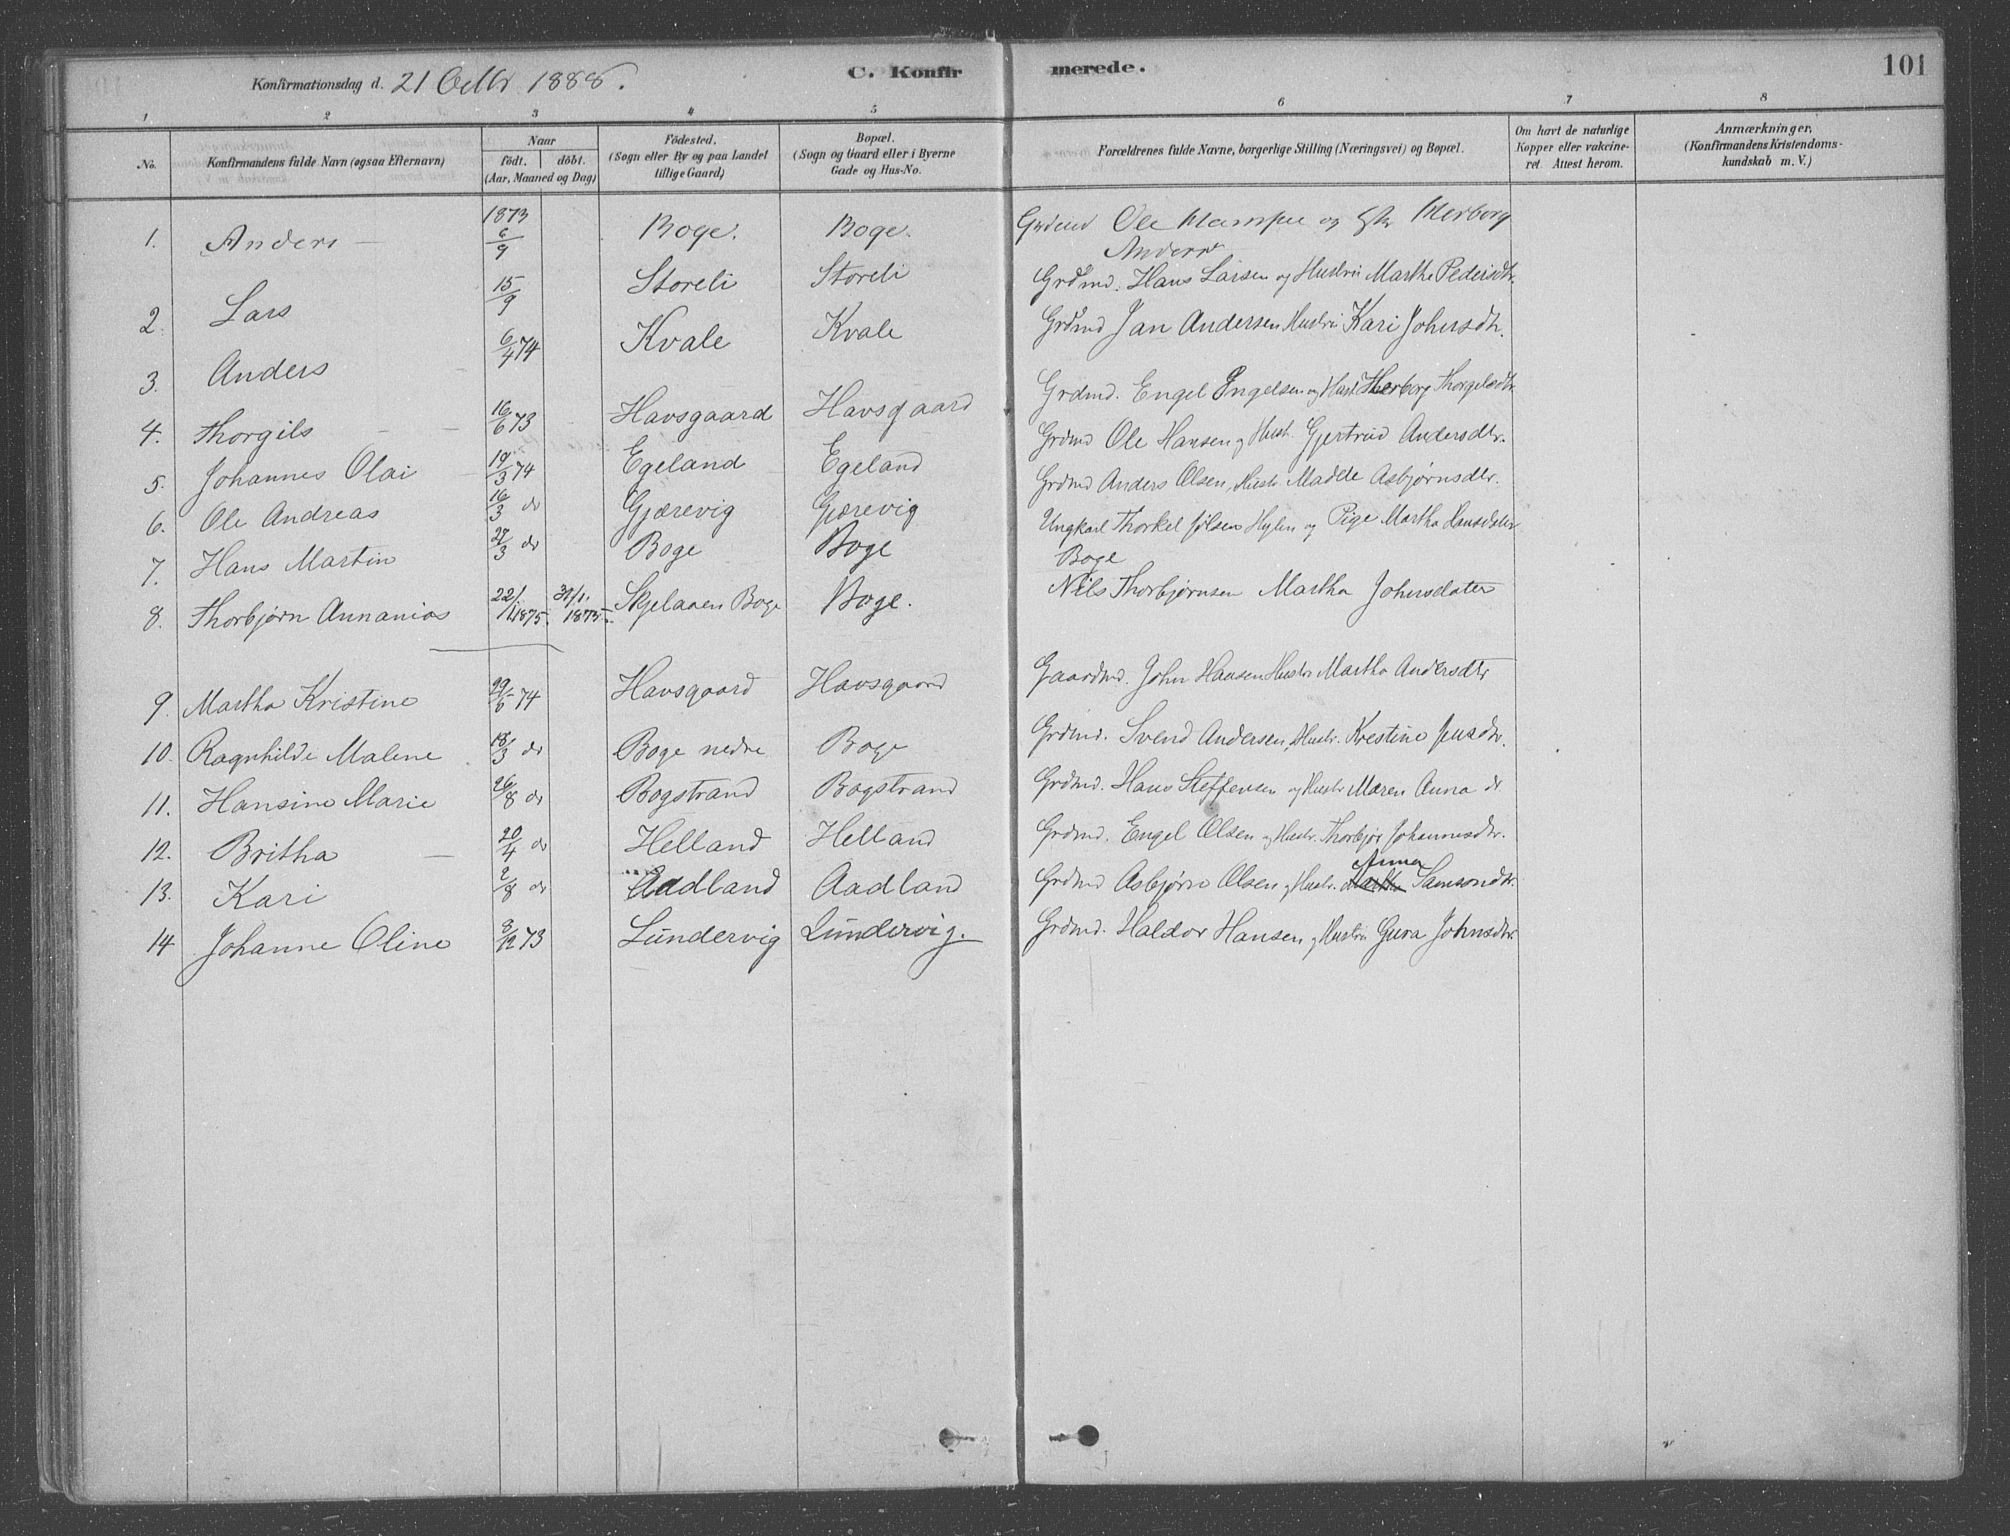 Konfirmationsdag d. 21 Octbr 1888.
C. Konfirmerede.
101
1 2 3 4 5 6 7 8
No. Konfirmandens fulde Navn (ogsaa Efternavn) Naar født. døbt. (Aar, Maaned og Dag) Fødested. (Sogn eller By og paa Landet tillige Gaard) Bopæl. (Sogn og Gaard eller i Byerne Gade og Hus-No. Forældrenes fulde Navne, borgerlige Stilling (Næringsvei) og Bopæl. Om havt de naturlige Kopper eller vakcineret. Attest herom. Anmærkninger. (Konfirmandens Kristendomskundskab m. V.)
1. Anders 1873 6/9 Boge. Boge. Grdmd Ole og Herborg
Andersd
2. Lars 15/9 Storeli Storeli Grdmd. Hans Larsen og Hustru Marthe Pedersdtr.
3. Anders 6/4 74 Kvale Kvale Grdmd Jan Andersen Hustru Kari Johnsdtr.
4. Thorgils 16/6 73 Havsgaard Havsgaard Grdmd. Engel Engelsen og Hust Herborg Thorgilsdtr
5. Johannes Olai 19/3 74 Egeland Egeland Grdmd Ole Hansen og Hust. Gjertrud Andersdtr.
6. Ole Andreas 16/3 do Gjærevig Gjærevig Grdmd Anders Olsen, Hustr Madde Asbjørnsdtr.
7. Hans Martin 27/3 do Boge Boge Ungkarl Thorkel Jølsen Hylen og Pige Martha Hansdater
Boge
8. Thorbjørn Annanias 22/1 1875. 31/1. 1875. Skjelaaen Boge Boge. Nils Thorbjørnsen Martha Johnsdater
9. Martha Kristine 29/6 74 Havsgaard Havsgaard Gaardmd. John Hansen Hustr Martha Andersdtr
10. Ragnhilde Malene 18/3 do Boge nedre Boge Grdmd. Svend Andersen, Hustr. Krestine Jensdtr.
11. Hansine Marie 26/8 do Bogstrand Bogstrand Grdmd. Hans Steffensen og Hustr Maren Anna dr
12. Britha 20/4 do Helland Helland Grdmd. Engel Olsen og Hustr. Thorbjør Johannesdtr.
13. Kari 2/8 do Aadland Aadland Grdmd Asbjørn Olsen og Hustr. Anna Samsondtr.
14 Johanne Oline 8/12 73 Lundervig Lundervig. Grdmd. Haldor Hansen og Hustru Gura Johnsdtr